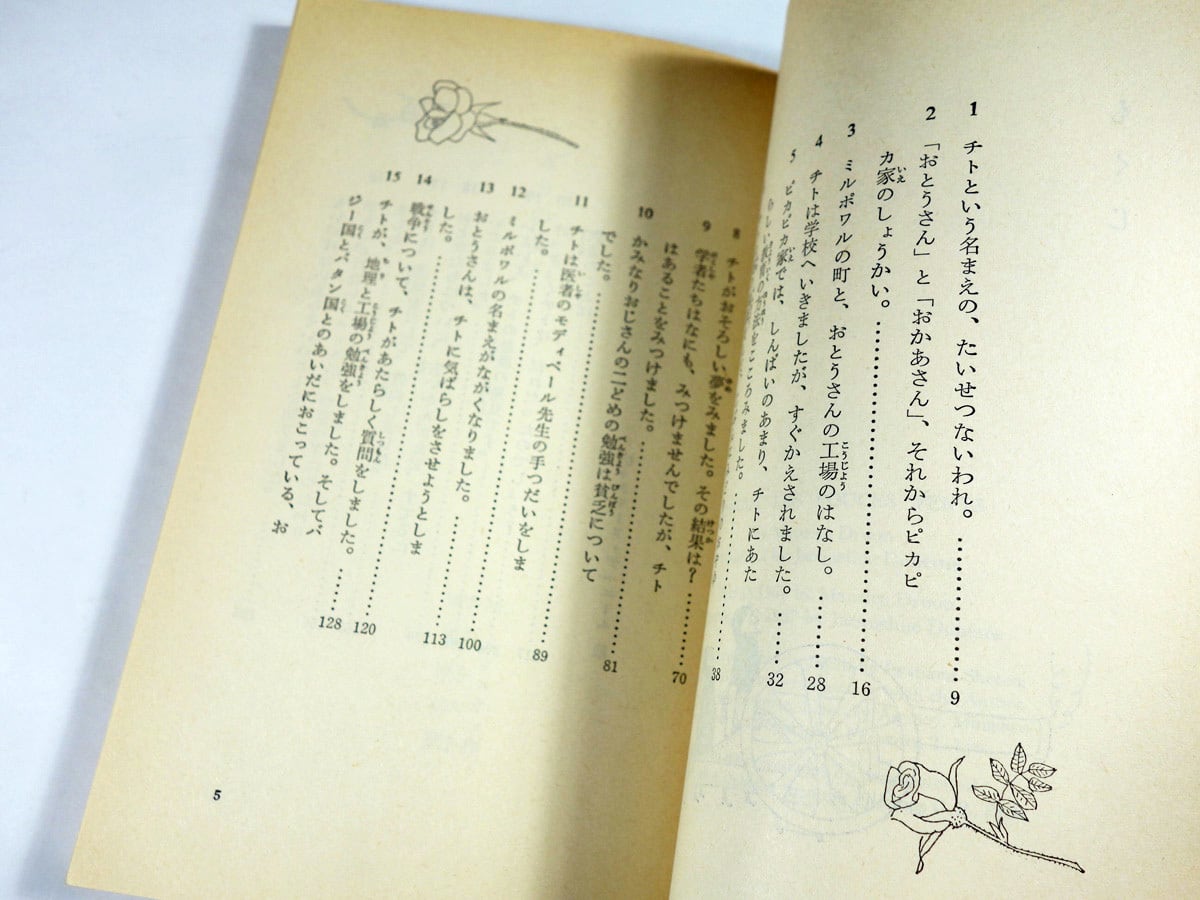 1 チトという名まえの、たいせつないわれ。…………9
2 「おとうさん」と「おかあさん」、それからピカピ
カ家のしょうかい。…………16
3 ミルポワルの町と、おとうさんの工場のはなし。……28
4 チトは学校へいきましたが、すぐかえされました。……32
5 ピカピカ家では、しんぱいのあまり、チトにあた
らしい教育の方法をこころみました。…………38
8 チトがおそろしい夢をみました。その結果は?
9 学者たちはなにも、みつけませんでしたが、チト
はあることをみつけました。…………70
10 かみなりおじさんの二どめの勉強は貧乏について
でした。…………81
11 チトは医者のモディベール先生の手つだいをしま
した。…………89
12 ミルポワルの名まえがながくなりました。…………100
13 おとうさんは、チトに気ばらしをさせようとしま
した。…………113
14 戦争について、チトがあたらしく質問をしました。…………120
15 チトが、地理と工場の勉強をしました。そしてバ
ジー国とバタン国とのあいだにおこっている、お
128
5